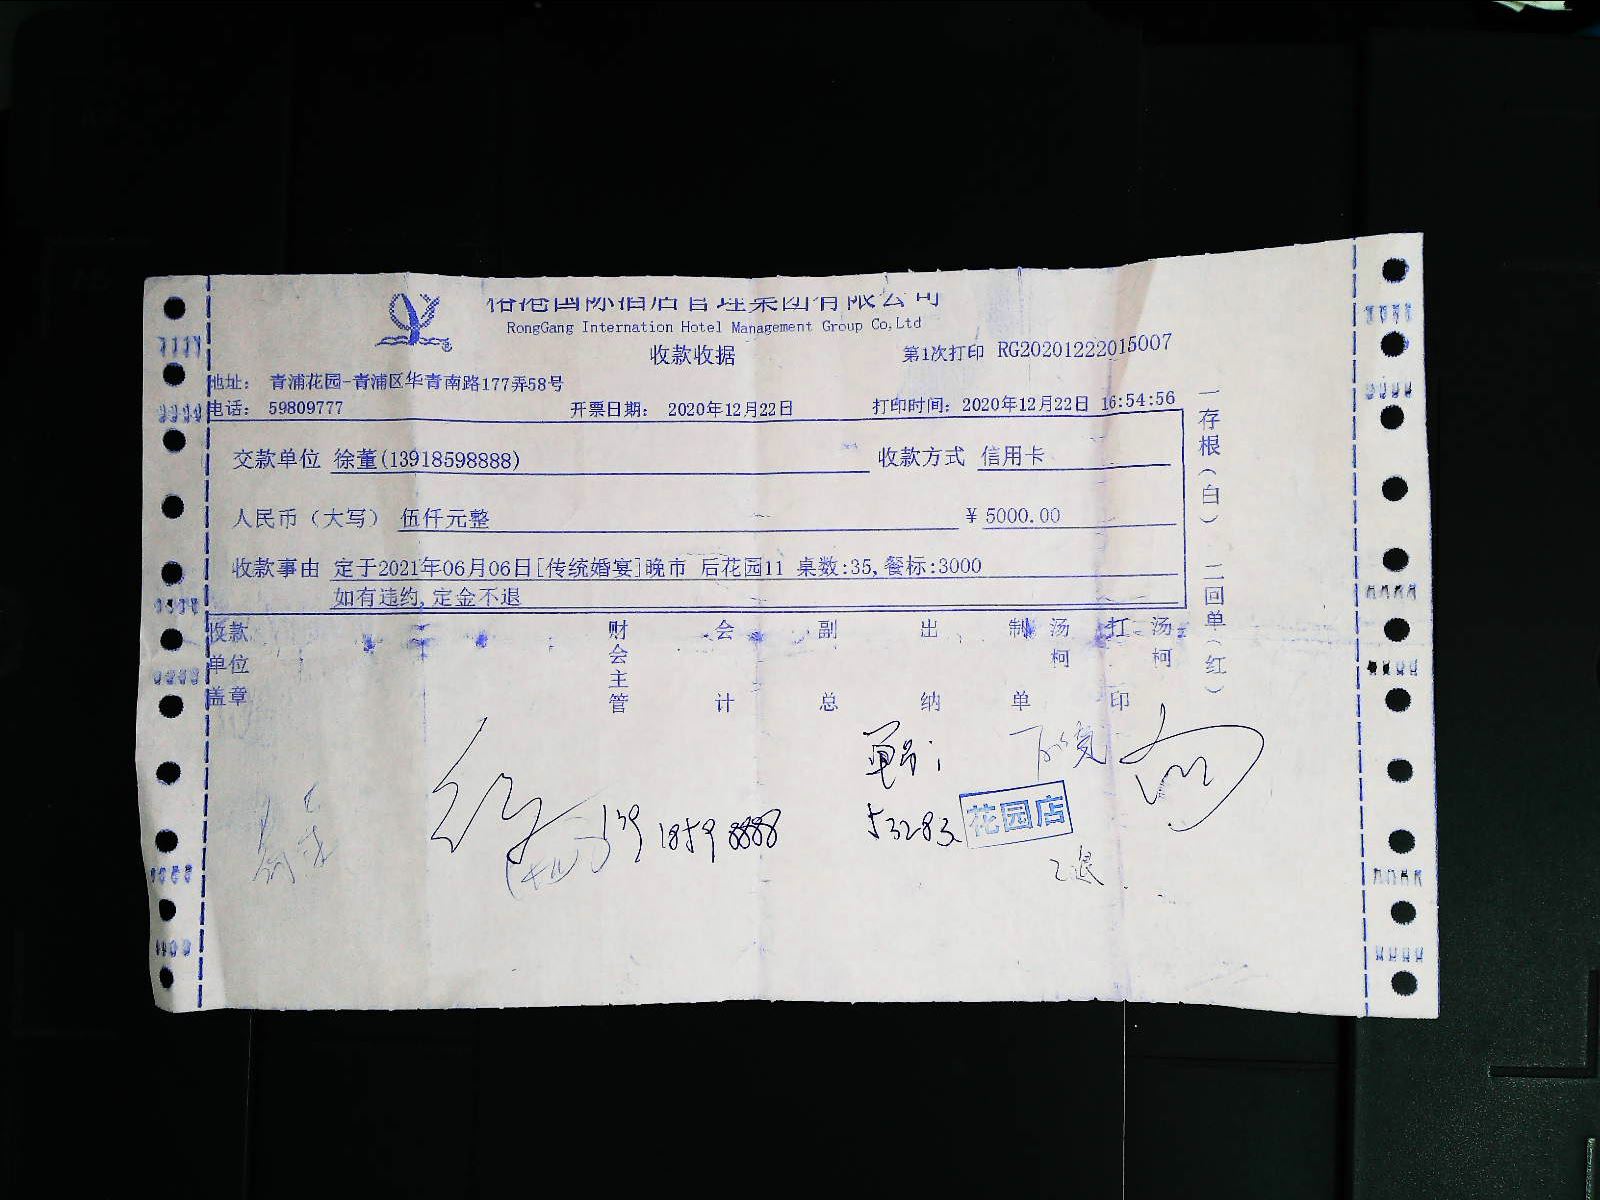 裕港国际酒店管理集团有限公司
RongGang Internation Hotel Management Group Co,Ltd
收款收据
第1次打印 RG20201222015007
地址： 青浦花园-青浦区华青南路177弄58号
电话： 59809777 开票日期： 2020年12月22日 打印时间：2020年12月22日 16:54:56
交款单位 徐董(13918598888) 收款方式 信用卡
人民币（大写） 伍仟元整 ￥5000.00
收款事由 定于2021年06月06日[传统婚宴]晚市 后花园11 桌数:35,餐标:3000
如有违约,定金不退
收款单位盖章 财会主管 会计 副总 出纳 制单 汤柯 打印 汤柯
一存根（白） 二回单（红）
139 1859 8888
53283
花园店
已退